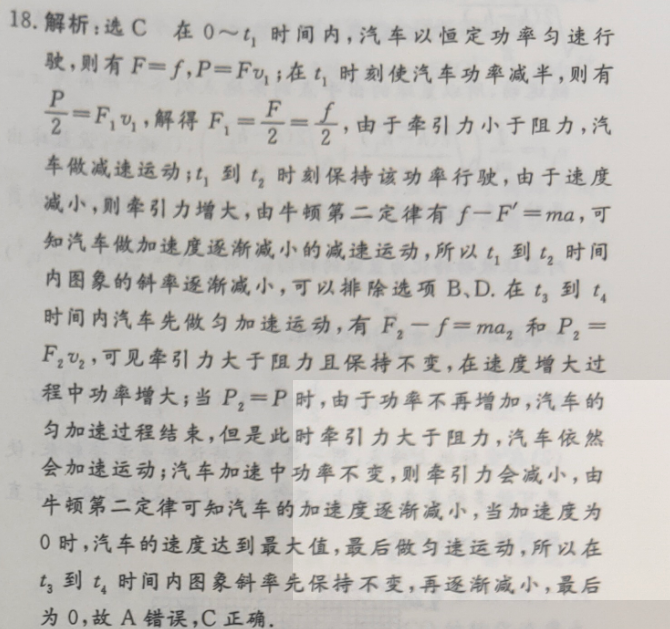 18. 解析:选 C 在 0～t₁ 时间内,汽车以恒定功率匀速行
驶,则有 F=f,P=Fv₁;在 t₁ 时刻使汽车功率减半,则有
P/2=F₁v₁,解得 F₁=F/2=f/2,由于牵引力小于阻力,汽
车做减速运动;t₁ 到 t₂ 时刻保持该功率行驶,由于速度
减小,则牵引力增大,由牛顿第二定律有 f－F′=ma,可
知汽车做加速度逐渐减小的减速运动,所以 t₁ 到 t₂ 时间
内图象的斜率逐渐减小,可以排除选项 B、D. 在 t₃ 到 t₄
时间内汽车先做匀加速运动,有 F₂－f=ma₂ 和 P₂=
F₂v₂,可见牵引力大于阻力且保持不变,在速度增大过
程中功率增大;当 P₂=P 时,由于功率不再增加,汽车的
匀加速过程结束,但是此时牵引力大于阻力,汽车依然
会加速运动;汽车加速中功率不变,则牵引力会减小,由
牛顿第二定律可知汽车的加速度逐渐减小,当加速度为
0 时,汽车的速度达到最大值,最后做匀速运动,所以在
t₃ 到 t₄ 时间内图象斜率先保持不变,再逐渐减小,最后
为 0,故 A 错误,C 正确.